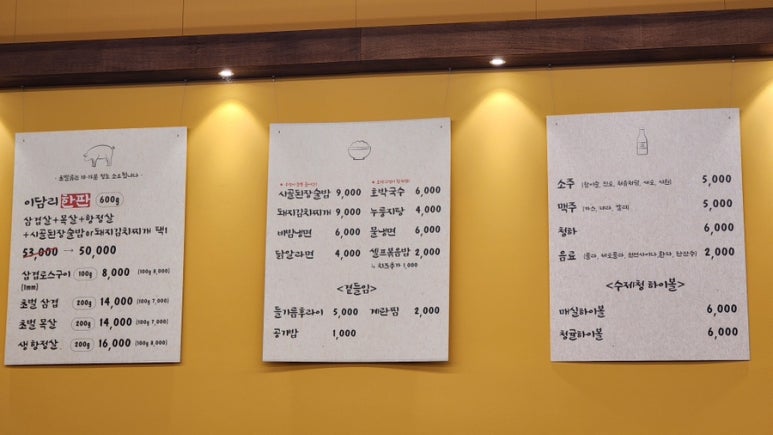 · 초벌류는 10-15분 정도 소요됩니다 ·
이달리 한판 600g
삼겹살+목살+항정살
+시골된장술밥 or 돼지김치찌개 택1
53,000 → 50,000
삼겹로스구이 100g 8,000 (100g 8,000)
(1mm)
초벌 삼겹 200g 14,000 (100g 7,000)
초벌 목살 200g 14,000 (100g 7,000)
생항정살 200g 16,000 (100g 8,000)
시골된장술밥 9,000
돼지김치찌개 9,000
비빔냉면 6,000
닭알라면 4,000
호박국수 6,000
누룽지탕 4,000
물냉면 6,000
셀프볶음밥 2,000
ㄴ 치즈추가 1,000
<곁들임>
들기름후라이 5,000
계란찜 2,000
공기밥 1,000
소주 (참이슬, 진로, 처음처럼, 새로, 시원)
5,000
맥주 (카스, 테라, 켈리)
5,000
청하 6,000
음료 2,000
<수제청 하이볼>
매실하이볼 6,000
청귤하이볼 6,000